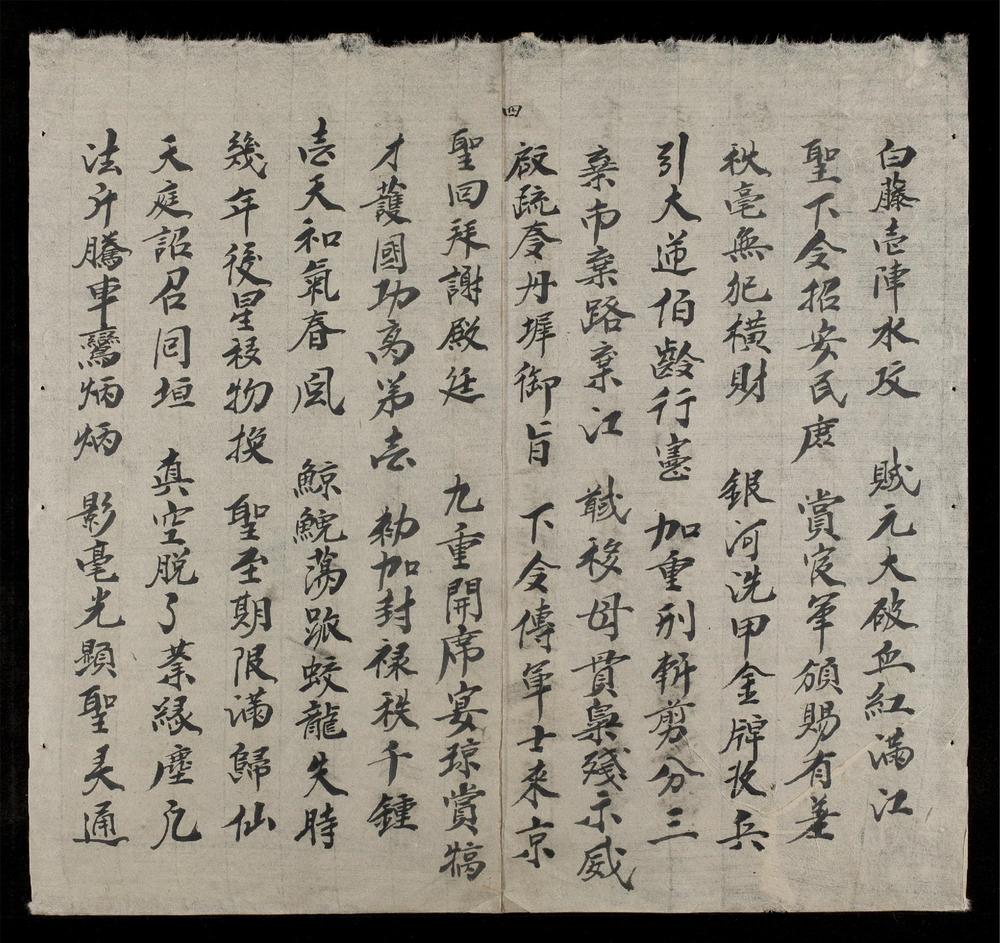 白藤壱陣水攻 賊元大破血紅滿江
聖下令招安民庶 賞官軍頒賜有差
秋毫無犯橫財 銀河洗甲金牌收兵
引大逆伯齡行憲 加重刑斬剪分三
棄市棄路棄江 馘移母貫梟殘示威
啟疏奏丹墀御旨 下令傳軍士來京
四
聖回拜謝殿廷 九重開席宴琼賞犒
才護國功高弟壱 勑加封祿秩千鍾
壱天和氣春風 鯨鯢蕩跡蛟龍失時
幾年後星移物換 聖至期限滿歸仙
天庭詔召回垣 真空脱了業緣塵凡
法升騰車鸞炳炳 影毫光顯聖灵通